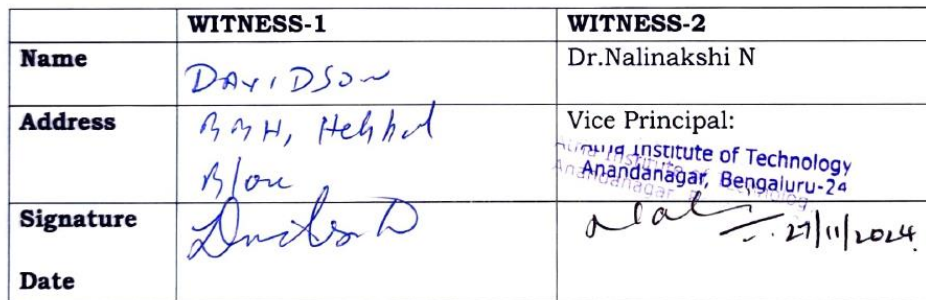 WITNESS-1 WITNESS-2
Name DAVIDSON Dr.Nalinakshi N
Address Hebbal Vice Principal:
B/ore Institute of Technology
Anandanagar, Bengaluru-24
Signature 27/11/2024
Date